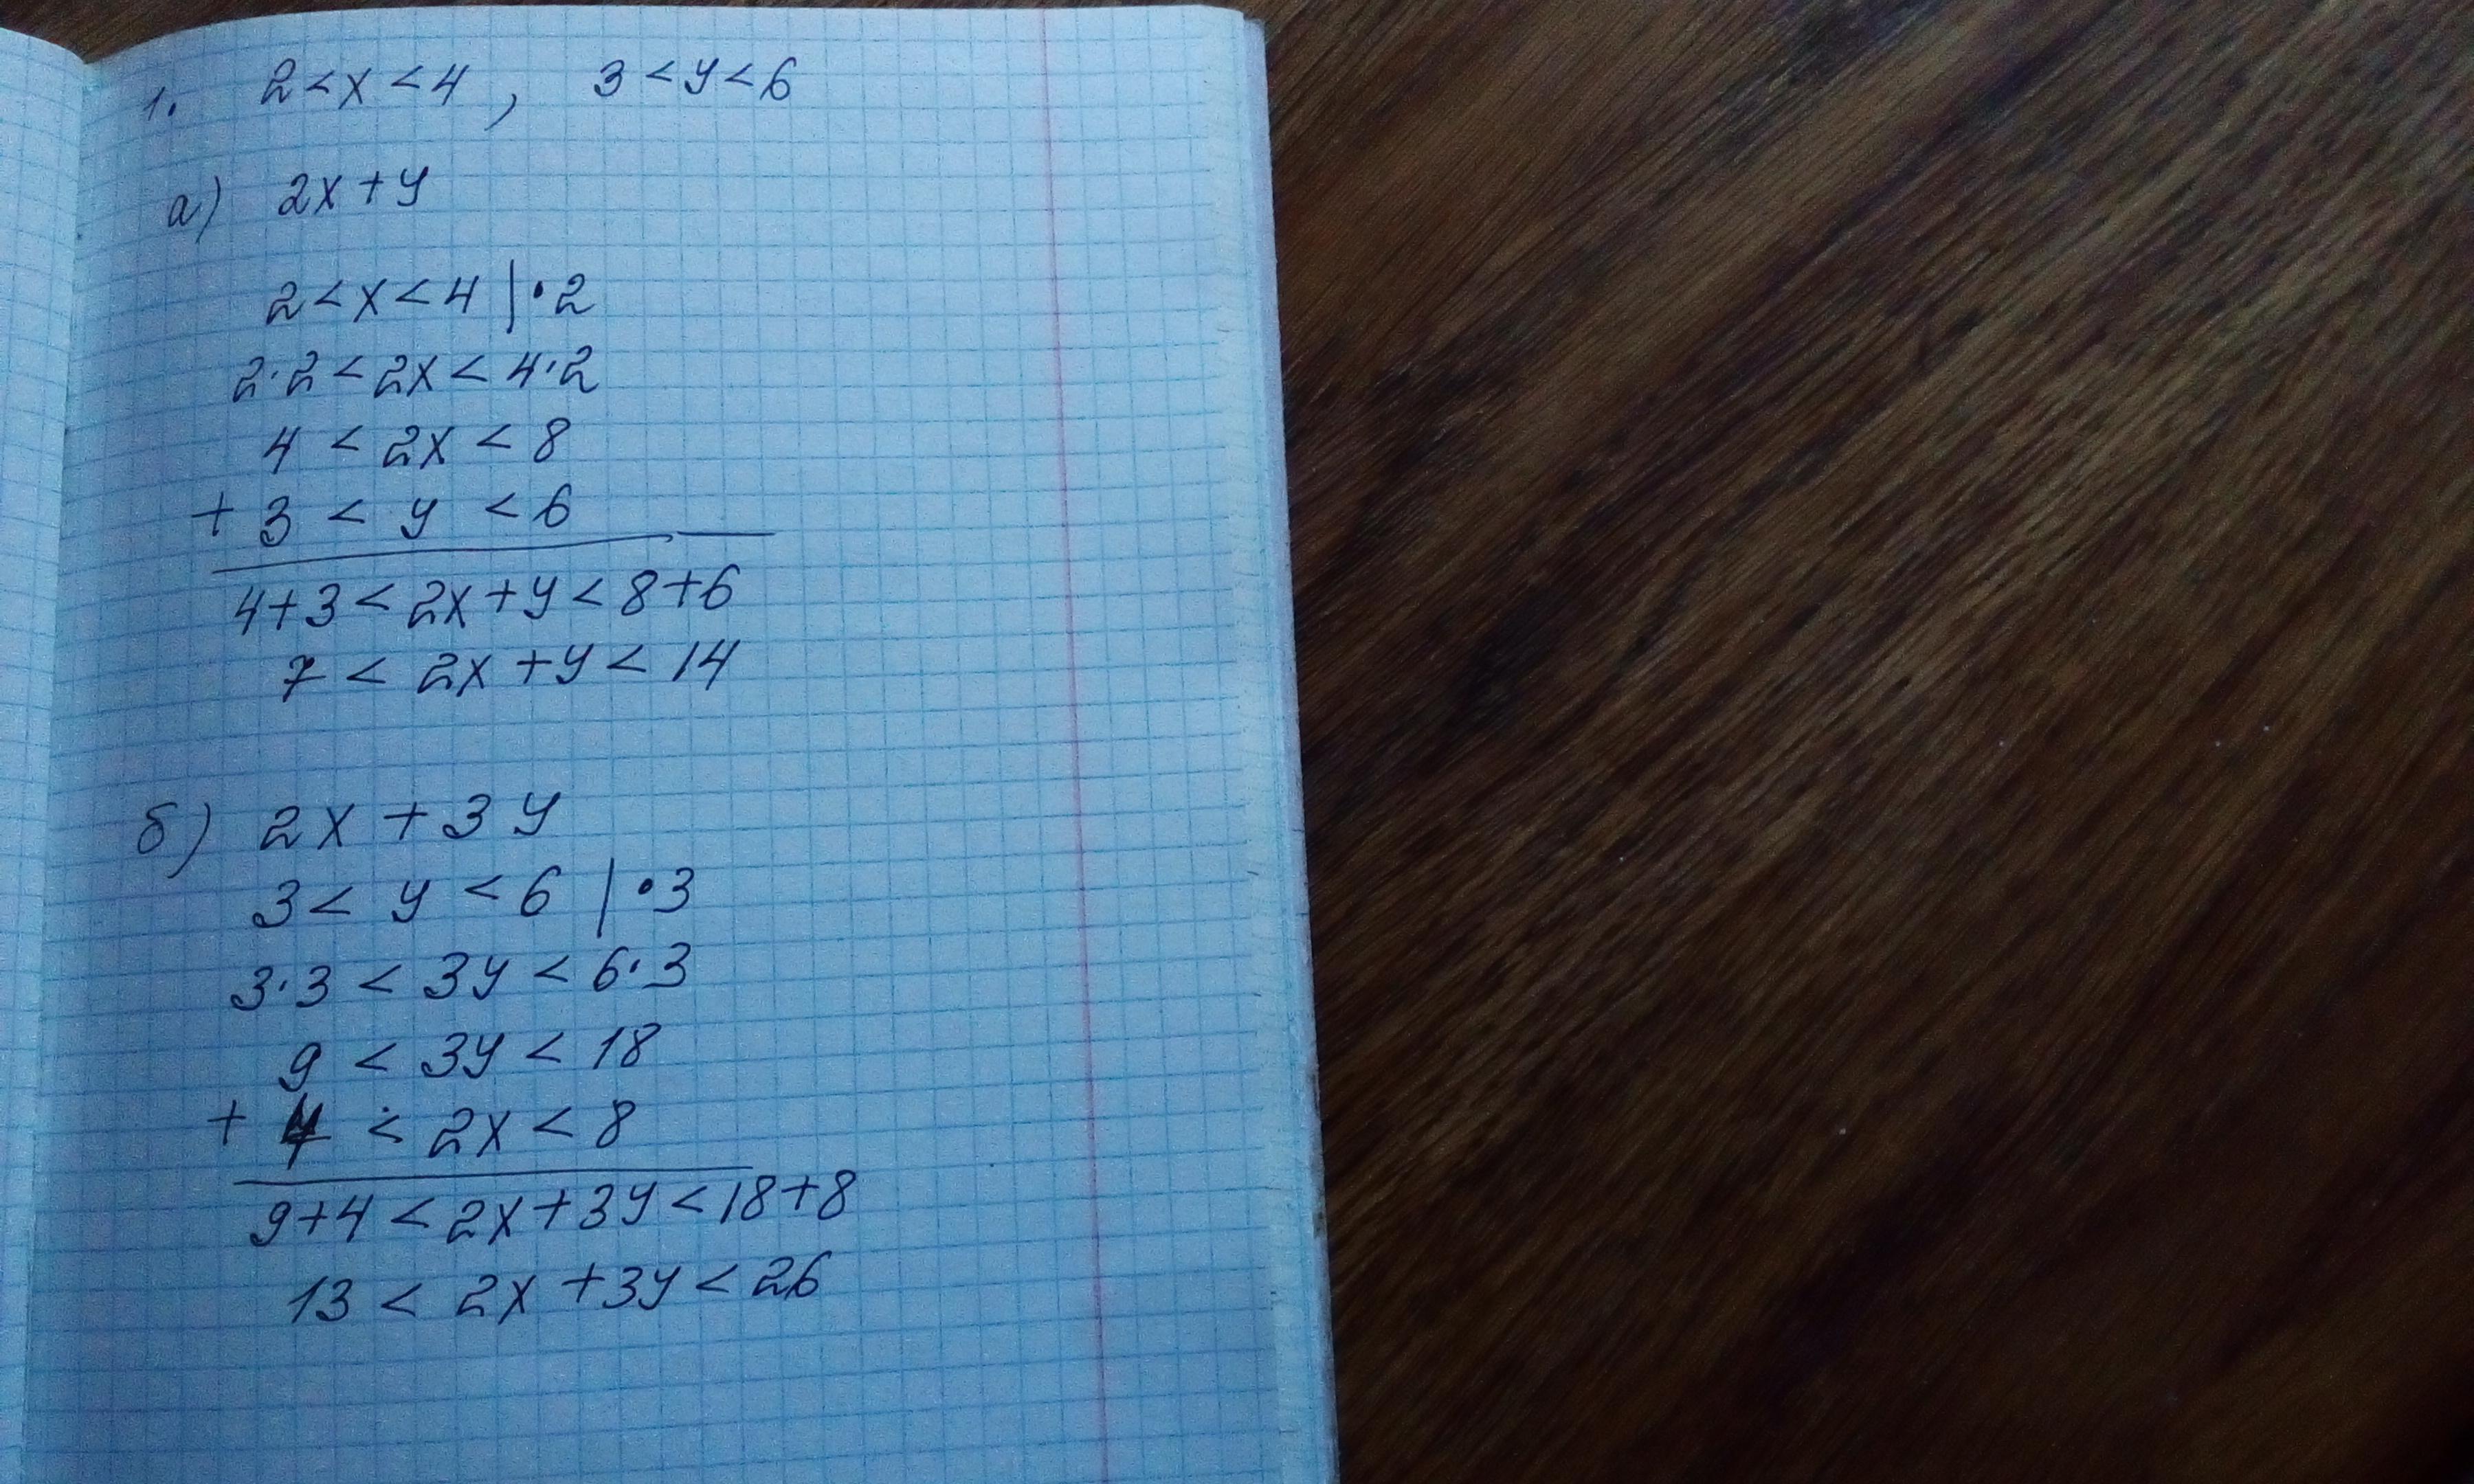 1. 2 < x < 4 , 3 < y < 6
а) 2x + y
2 < x < 4 | · 2
2 · 2 < 2x < 4 · 2
4 < 2x < 8
+ 3 < y < 6
4 + 3 < 2x + y < 8 + 6
7 < 2x + y < 14
б) 2x + 3y
3 < y < 6 | · 3
3 · 3 < 3y < 6 · 3
9 < 3y < 18
+ 4 < 2x < 8
9 + 4 < 2x + 3y < 18 + 8
13 < 2x + 3y < 26